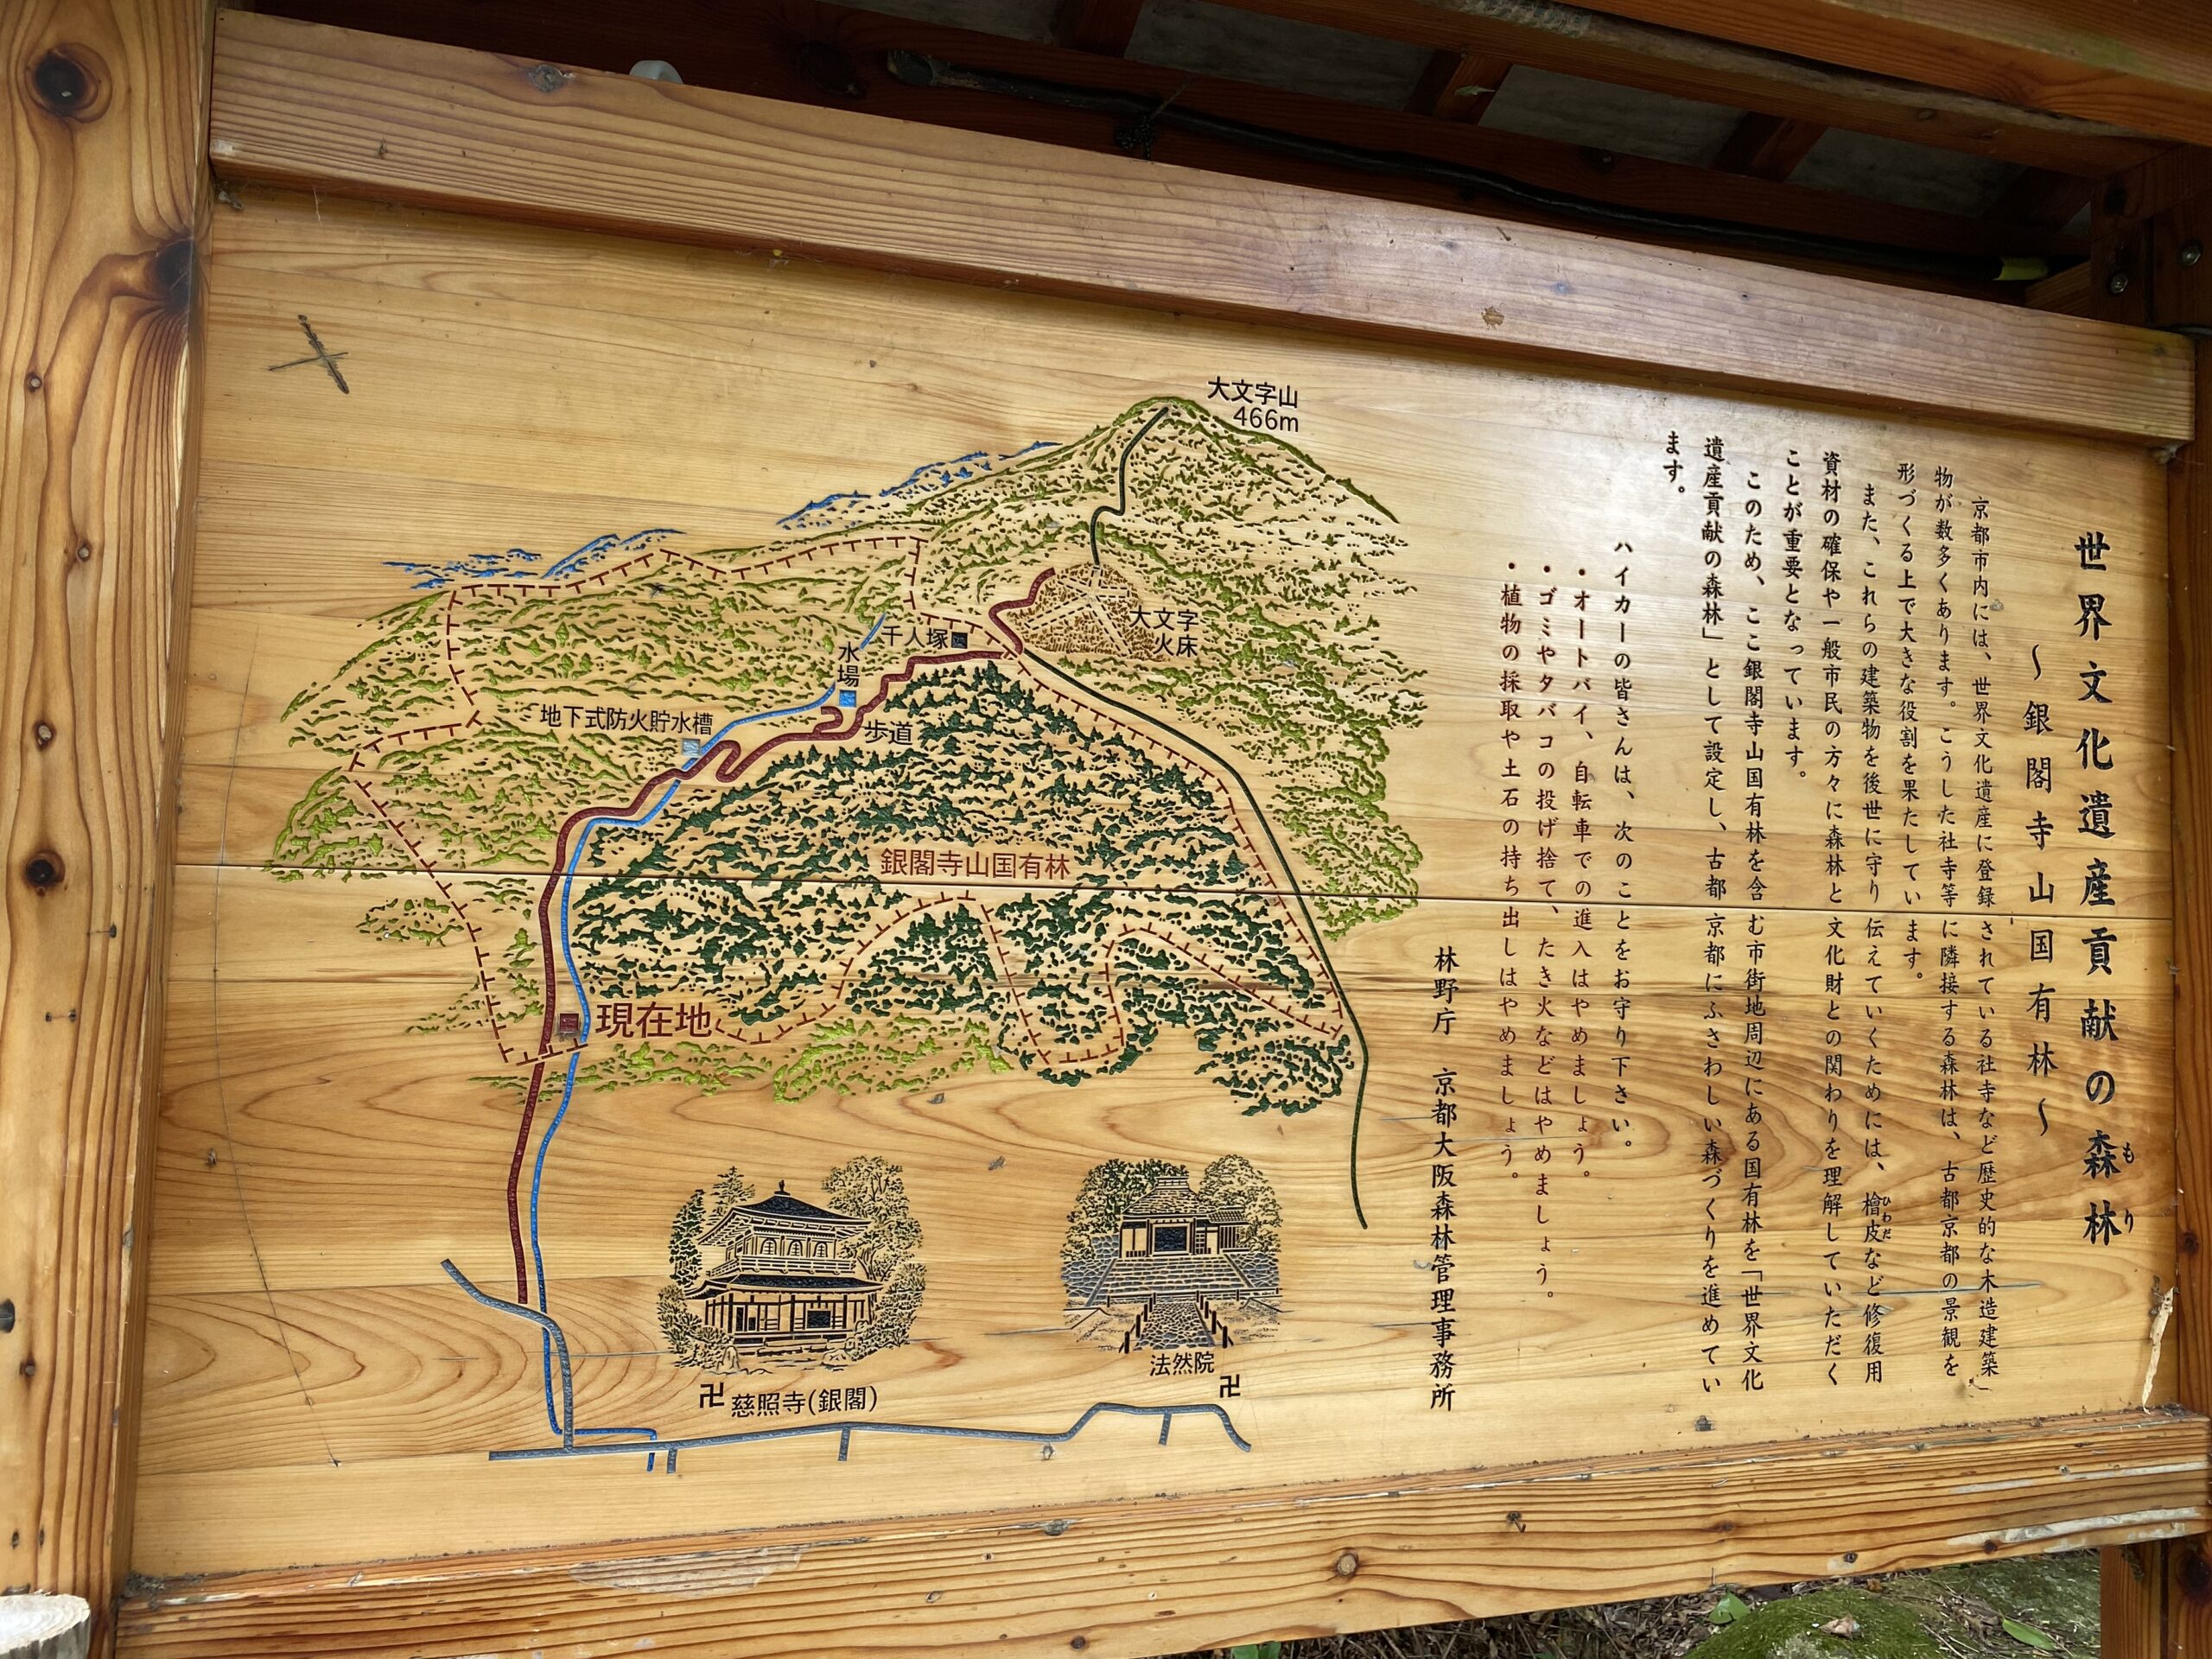 世界文化遺産貢献の森林
もり
～銀閣寺山国有林～
京都市内には、世界文化遺産に登録されている社寺など歴史的な木造建築
物が数多くあります。こうした社寺等に隣接する森林は、古都京都の景観を
形づくる上で大きな役割を果たしています。
また、これらの建築物を後世に守り伝えていくためには、檜皮など修復用
ひわだ
資材の確保や一般市民の方々に森林と文化財との関わりを理解していただく
ことが重要となっています。
このため、ここ銀閣寺山国有林を含む市街地周辺にある国有林を「世界文化
遺産貢献の森林」として設定し、古都京都にふさわしい森づくりを進めてい
ます。
ハイカーの皆さんは、次のことをお守り下さい。
・オートバイ、自転車での進入はやめましょう。
・ゴミやタバコの投げ捨て、たき火などはやめましょう。
・植物の採取や土石の持ち出しはやめましょう。
林野庁 京都大阪森林管理事務所
大文字山
466m
大文字
火床
千人塚
水場
歩道
地下式防火貯水槽
銀閣寺山国有林
現在地
法然院
卍
卍 慈照寺(銀閣)